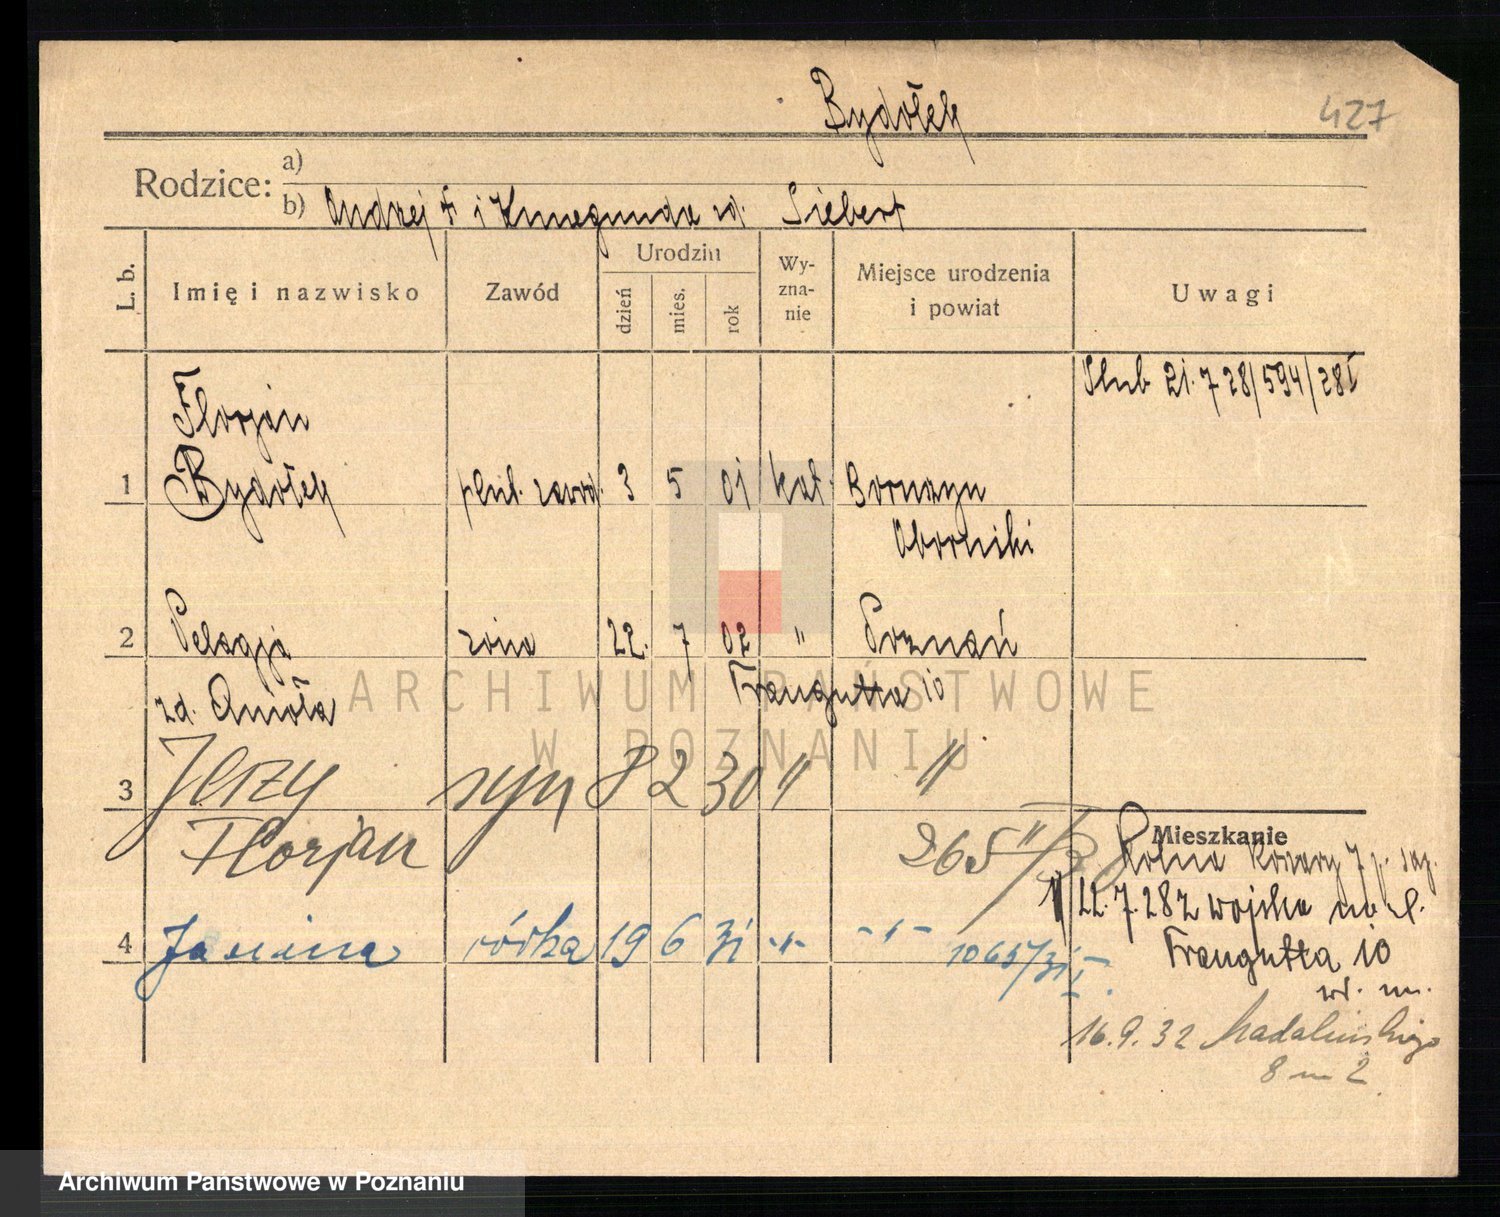 Bydołek
427
Rodzice: a)
b) Andrzej i Kunegunda zd. Siebert
L. b. Imię i nazwisko Zawód Urodzin dzień mies. rok Wyznanie Miejsce urodzenia i powiat Uwagi
Ślub 21.7.28/594/28 I
Florjan
1 Bydołek plut. zawod. 3 5 01 kat.
Oborniki
2 Pelagja żona 22. 7 02 " Poznań
zd. Anioła Traugutta 10
3 Jerzy syn 8 2 30 " "
Florjan 265
Mieszkanie
Rolna
22.7.28 z wojska na ul.
4 Janina córka 19 6 31 -"- -"-
1065/31 I
Traugutta 10
16.9.32 Madalińskiego
8 m 2
ARCHIWUM PAŃSTWOWE
W POZNANIU
Archiwum Państwowe w Poznaniu